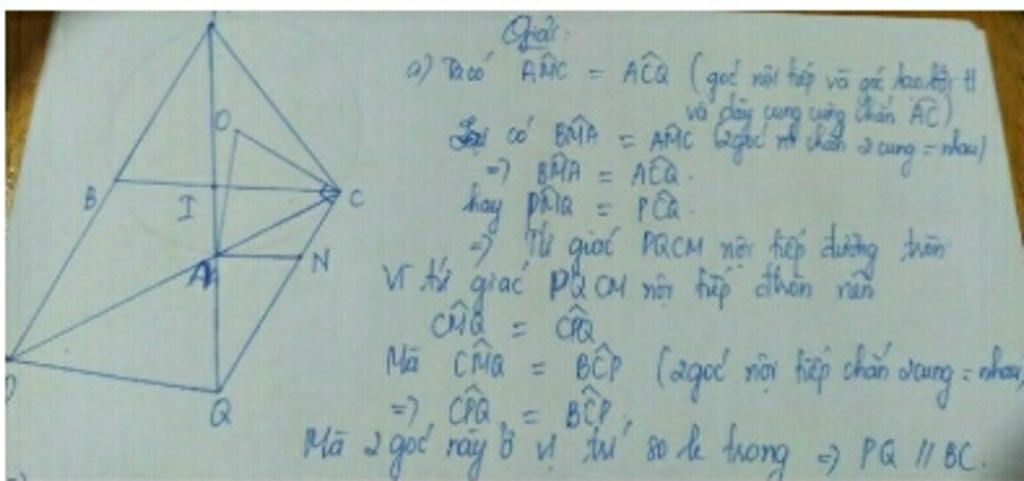 Giải:
a) Ta có AM̂C = AĈQ (góc nội tiếp và góc tạo bởi tt
và dây cung cùng chắn AC)
Lại có BM̂A = AM̂C (2góc nt chắn 2 cung = nhau)
=) BM̂A = AĈQ.
hay PM̂Q = PĈQ.
=) Tứ giác PQCM nội tiếp đường tròn
Vì tứ giác PQCM nội tiếp đtròn nên
CM̂Q = CP̂Q
Mà CM̂Q = BĈP (2góc nội tiếp chắn 2cung = nhau)
=) CP̂Q = BĈP.
Mà 2 góc này ở vị trí so le trong =) PQ // BC.
O
B
I
C
A
N
Q